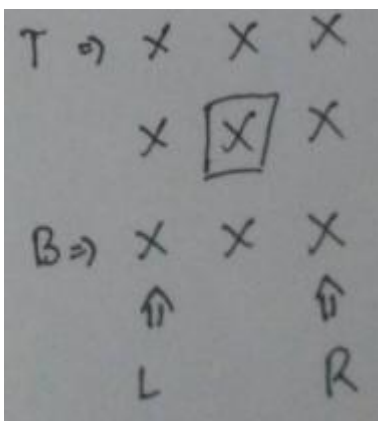 T ⇒ X X X
X X X
B ⇒ X X X
⇑ ⇑
L R